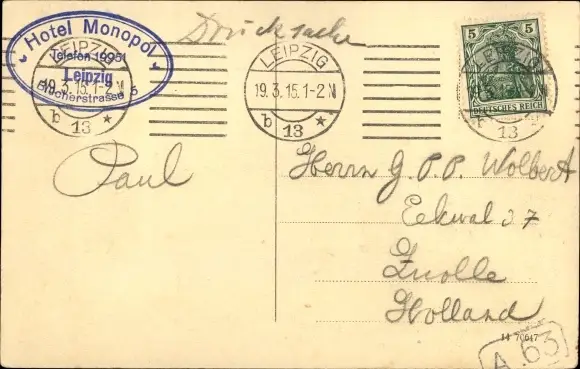 Hotel Monopol
Telefon 19951
Leipzig
Blücherstrasse 5
Drucksache
LEIPZIG
19.3.15.1-2 N
b 13 *
LEIPZIG
19.3.15.1-2 N
b 13 *
5 5
DEUTSCHES REICH
13
Paul
Herrn G. P. P. Wolbert
Eekwal 27
Zwolle
Holland
14 70617
A.63